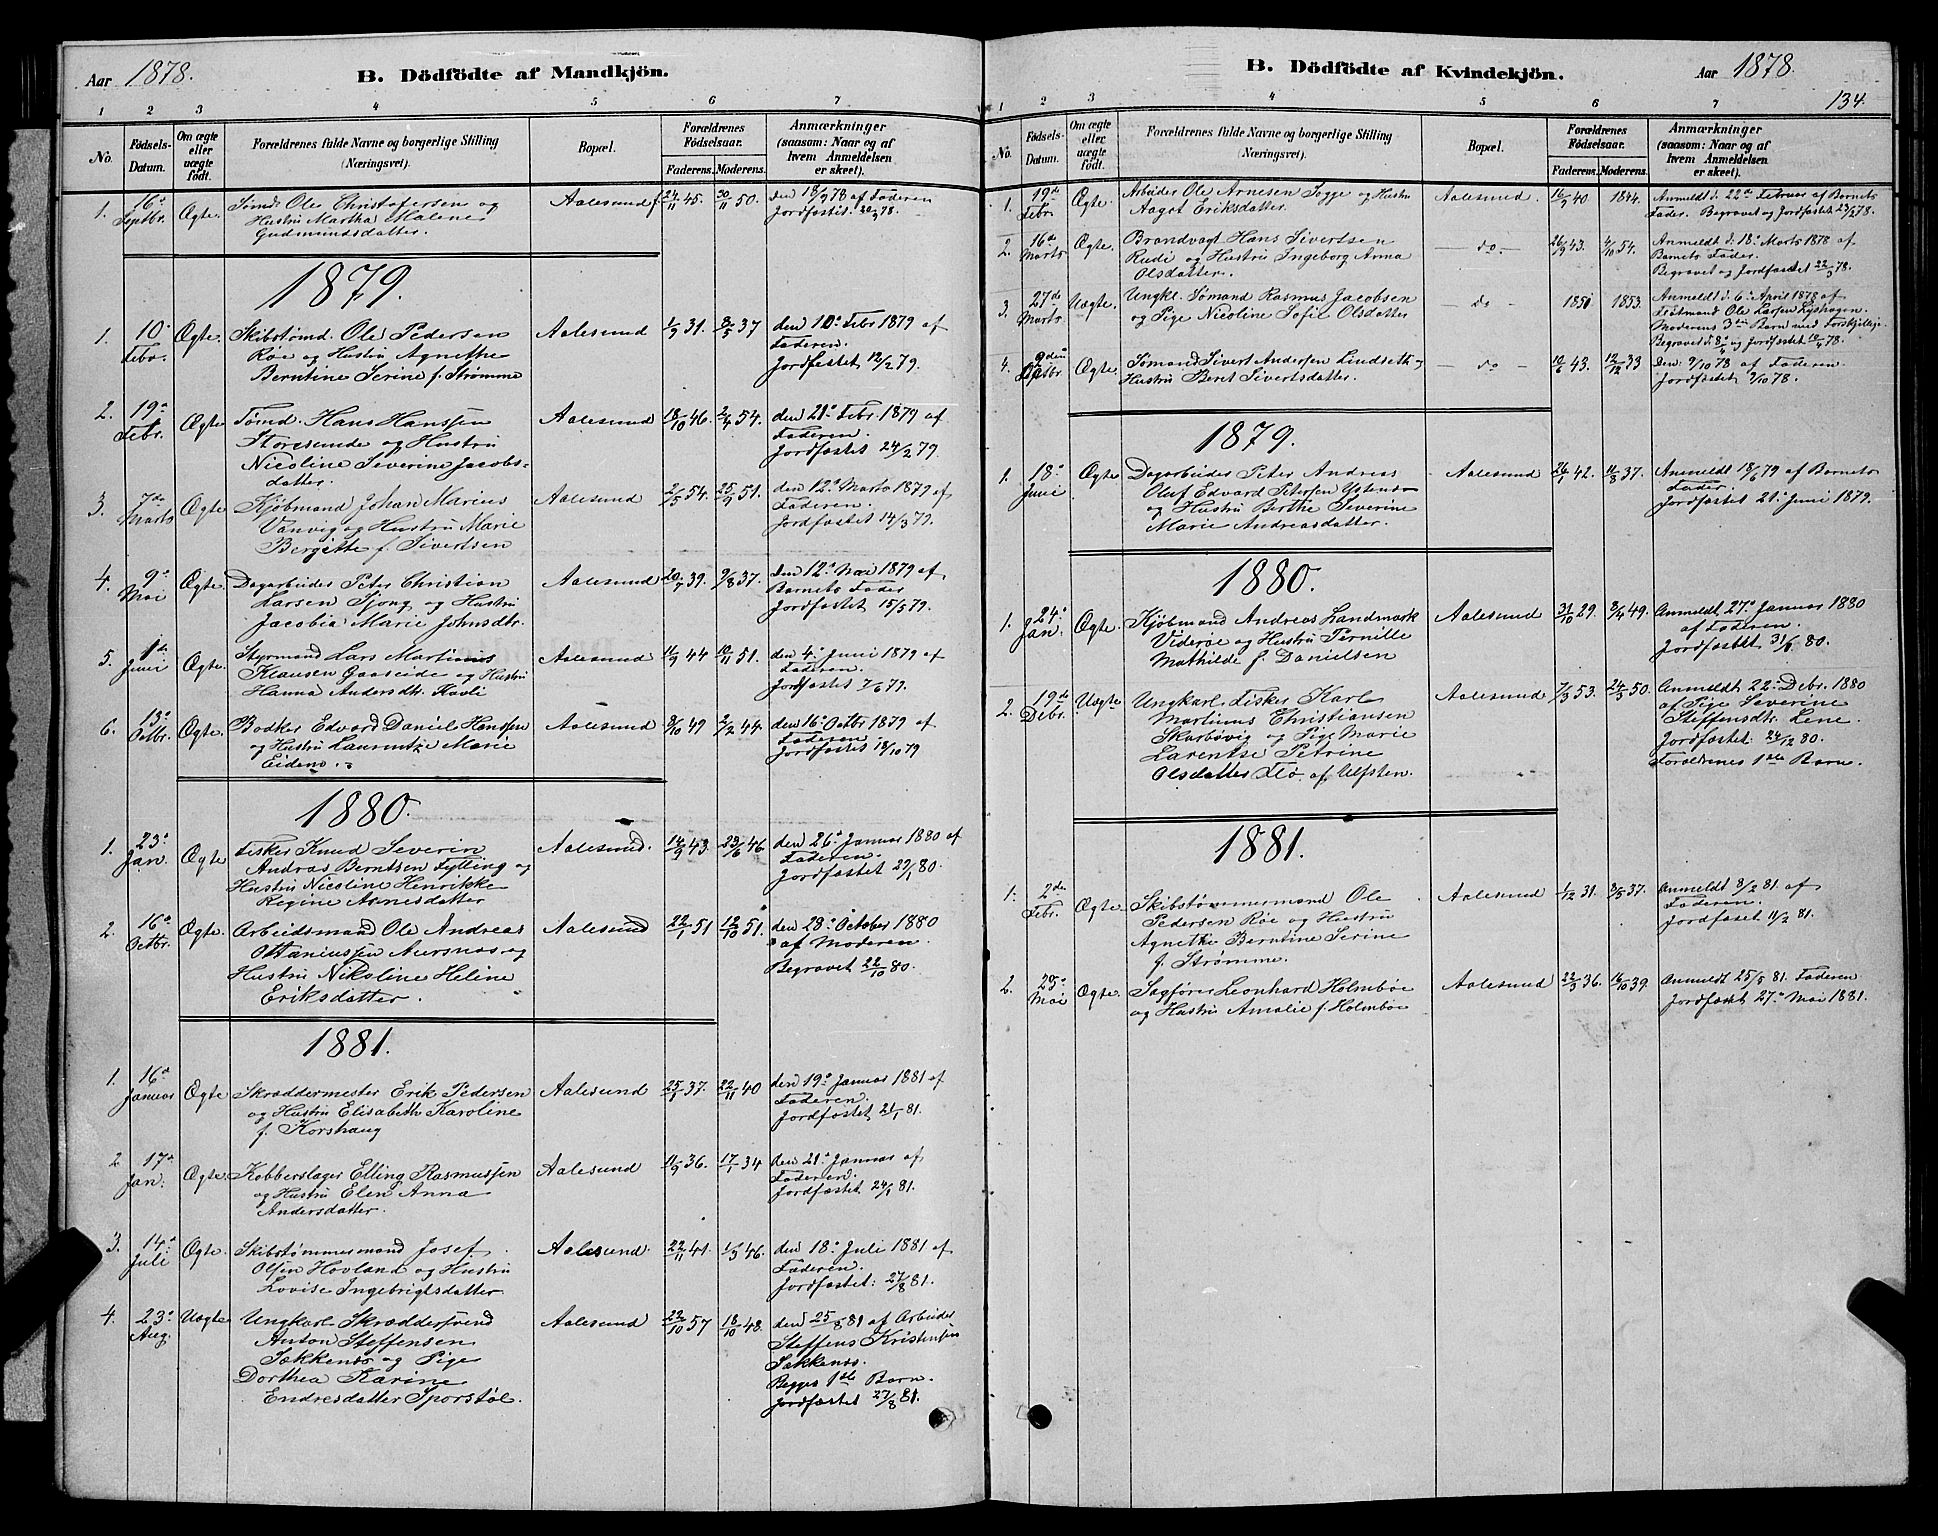 Aar 1878.
B. Dödfödte af Mandkjön.
1 2 3 4 5 6 7
No.
Födsels-
Datum.
Om ægte
eller
uægte
födt.
Forældrenes fulde Navne og borgerlige Stilling
(Næringsvei).
Bopæl.
Forældrenes
Fødselsaar.
Faderens. Moderens.
Anmærkninger
(saasom: Naar og af
hvem Anmeldelsen
er skeet).
1. 16de Septbr. Ægte Sømd. Ole Christofersen og Aalesund 24/11 45. 30/11 50. den 18/9 78 af Faderen
Hustru Martha Malene Jordfæstet 20/9 78.
Gudmundsdatter.
1879.
1. 10de Febr. Ægte. Skibstømd. Ole Pedersen Aalesund 1/9 31. 8/5 37 den 10de Febr 1879 af
Røe og Hustru Agnethe Faderen.
Berntine Serine f. Strømme Jordfæstet 12/2 79.
2. 19de Febr. Ægte Tømd. Hans Hanssen Aalesund 18/10 46. 2/4 54. den 21de Febr. 1879 af
Storesunde og Hustru Faderen.
Nicoline Severine Jacobs- Jordfæstet 24/2 79.
datter.
3. 7de Marts Ægte Kjøbmand Johan Marius Aalesund 2/5 54. 25/9 51. den 12de Marts 1879 af
Vanvig og Hustru Marie Faderen.
Bergitte f. Sivertsen Jordfæstet 14/3 79.
4. 9de Mai Ægte Dagarbeider Peter Christian Aalesund 20/7 39. 9/8 37. den 12de Mai 1879 af
Larsen Sjong og Hustru Barnets Fader
Jacobia Marie Johnsdtr. Jordfæstet 15/5 79.
5. 1de Juni Ægte. Styrmand Lars Martinus Aalesund 11/9 44 10/11 51. den 4de Juni 1879 af
Klausen Gaaseide og Hustru Faderen.
Hanna Andersdtr. Kavli Jordfæstet 7/6 79.
6. 13de Octbr. Ægte. Bødker Edvard Daniel Hanssen Aalesund 3/10 49 2/2 44. den 16de Octbr 1879 af
og Hustru Laurentze Marie Faderen
Eidene. Jordfæstet 18/10 79
1880.
1. 23de Jan. Ægte Fisker Knud Severin Aalesund. 14/9 43. 23/6 46. den 26de Januar 1880 af
Andras Berntsen Fylling og Faderen.
Hustru Nicoline Henrikke Jordfæstet 29/1 80.
Regine Arnesdatter
2. 16de Octbr. Ægte. Arbeidsmand Ole Andreas Aalesund 22/1 51 12/10 51. den 28de October 1880
Ottaniussen Aursnes og af Moderen.
Hustru Nikoline Heline Begravet 22/10 80.
Eriksdatter.
1881.
1. 16de Januar Ægte Skræddermester Erik Pedersen Aalesund 25/1 37. 22/11 40 den 19de Januar 1881 af
og Hustru Elisabeth Karoline Faderen.
f. Korshaug Jordfæstet 21/1 81.
2 17de Jan. Ægte. Kobberslager Elling Rasmussen Aalesund 11/9 36. 17/1 34 den 21de Januar af
og Hustru Elen Anna Faderen.
Andersdatter. Jordfæstet 24/1 81.
3. 14de Juli Ægte. Skibstømmermand Josef Aalesund. 22/11 41. 1/5 46. den 18de Juli 1881 af
Olsen Hovland og Hustru Faderen.
Lovise Ingebrigtsdatter. Jordfæstet: 27/8 81.
4. 23de Aug. Uægte Ungkarl Skræddersvend Aalesund 22/10 57 18/10 48. den 25/8 81 af Arbeider
Anton Steffensen Steffens Kristensen
Søkkenes og Pige Søkkenes.
Dorthea Karine Begges 1ste Barn.
Endresdatter Sporstøl. Jordfæstet 27/8 81.
B. Dödfödte af Kvindekjön.
Aar 1878.
134.
1 2 3 4 5 6 7
No.
Födsels-
Datum.
Om ægte
eller
uægte
födt.
Forældrenes fulde Navne og borgerlige Stilling
(Næringsvei).
Bopæl.
Forældrenes
Fødselsaar.
Faderens. Moderens.
Anmærkninger
(saasom: Naar og af
hvem Anmeldelsen
er skeet).
1. 19de Febr. Ægte. Arbeider Ole Arnesen Sogge og Hustru Aalesund 16/7 40 1844. Anmeldt d. 22de Februar af Barnets
Aagot Eriksdatter. Fader. Begravet og Jordfæstet 23/2 78.
2. 16de Marts Ægte. Brandvagt Hans Sivertsen — do — 26/9 43. 4/10 54. Anmeldt d. 18de Marts 1878 af
Rudi og Hustru Ingeborg Anna Barnets Fader.
Olsdatter. Begravet og Jordfæstet 22/3 78.
3. 27de Marts Uægte. Ungkl. Sømand Rasmus Jacobsen — do 1851 1853. Anmeldt d. 6te April 1878 af
og Pige Nicoline Sofie Olsdatter Lars Ole Larsen
Moderens 3die Barn med Forskjellige.
Begravet d. 8/4 og Jordfæstet 10/4 78.
4. 9den Octbr. Ægte. Sømand Sivert Andersen Lindseth og — do — 10/6 43. 12/12 33 Den 9/10 78 af Faderen.
Hustru Beret Sivertsdatter. Jordfæstet 9/10 78.
1879.
1. 18de Juni Ægte Dagarbeider Peter Andreas Aalesund 26/1 42. 11/8 37. Anmeldt 18/6 79 af Barnets
Oluf Edvard Petersen Fader.
og Hustru Berthe Severine Jordfæstet 21de Juni 1879.
Marie Andreasdatter.
1880.
1. 24de Jan. Ægte Kjøbmand Andreas Landmark Aalesund 31/10 29. 3/4 49. Anmeldt 27de Januar 1880
Viderøe og Hustru Pernille af Faderen.
Mathilde f. Danielsen Jordfæstet 31/1 80.
2. 19de Debr. Uægte Ungkarl Fisker Karl Aalesund 7/3 53. 24/3 50. Anmeldt 22de Debr. 1880
Martinus Christiansen af Pige Severine
Skarbøvig og Pige Marie Steffensdtr. Lene.
Larentse Petrine Jordfæstet: 24/12 80.
Olsdatter Flø af Ulfsten. Forældrenes 1ste Barn.
1881.
1. 2den Febr. Ægte Skibstømmermand Ole Aalesund 1/12 31. 8/5 37. Anmeldt 3/2 81 af
Pedersen Røe og Hustru Faderen.
Agnethe Berntine Serine Jordfæstet 11/2 81.
f. Strømme.
2. 25de Mai Ægte. Sagfører Leonhard Holmboe Aalesund 22/3 36. 16/10 39. Anmeldt 25/5 81. Faderen
og Hustru Amalie f. Holmboe Jordfæstet 27de Mai 1881.